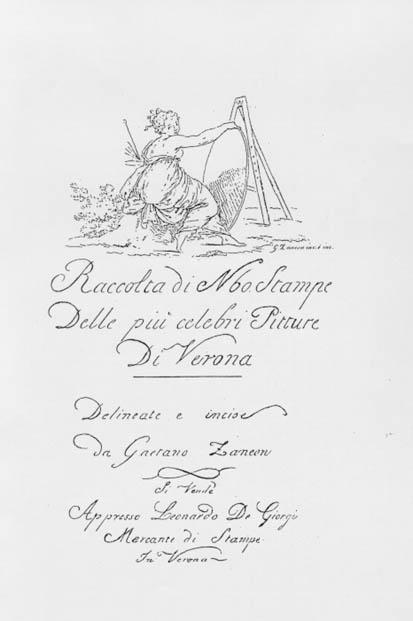 G. Zancon inv. e inc.
Raccolta di N60 Stampe
Delle più celebri Pitture
Di Verona
Delineate e incise
da Gaetano Zancon
Si Vende
Appresso Leonardo De Giorgi
Mercanti di Stampe
In Verona